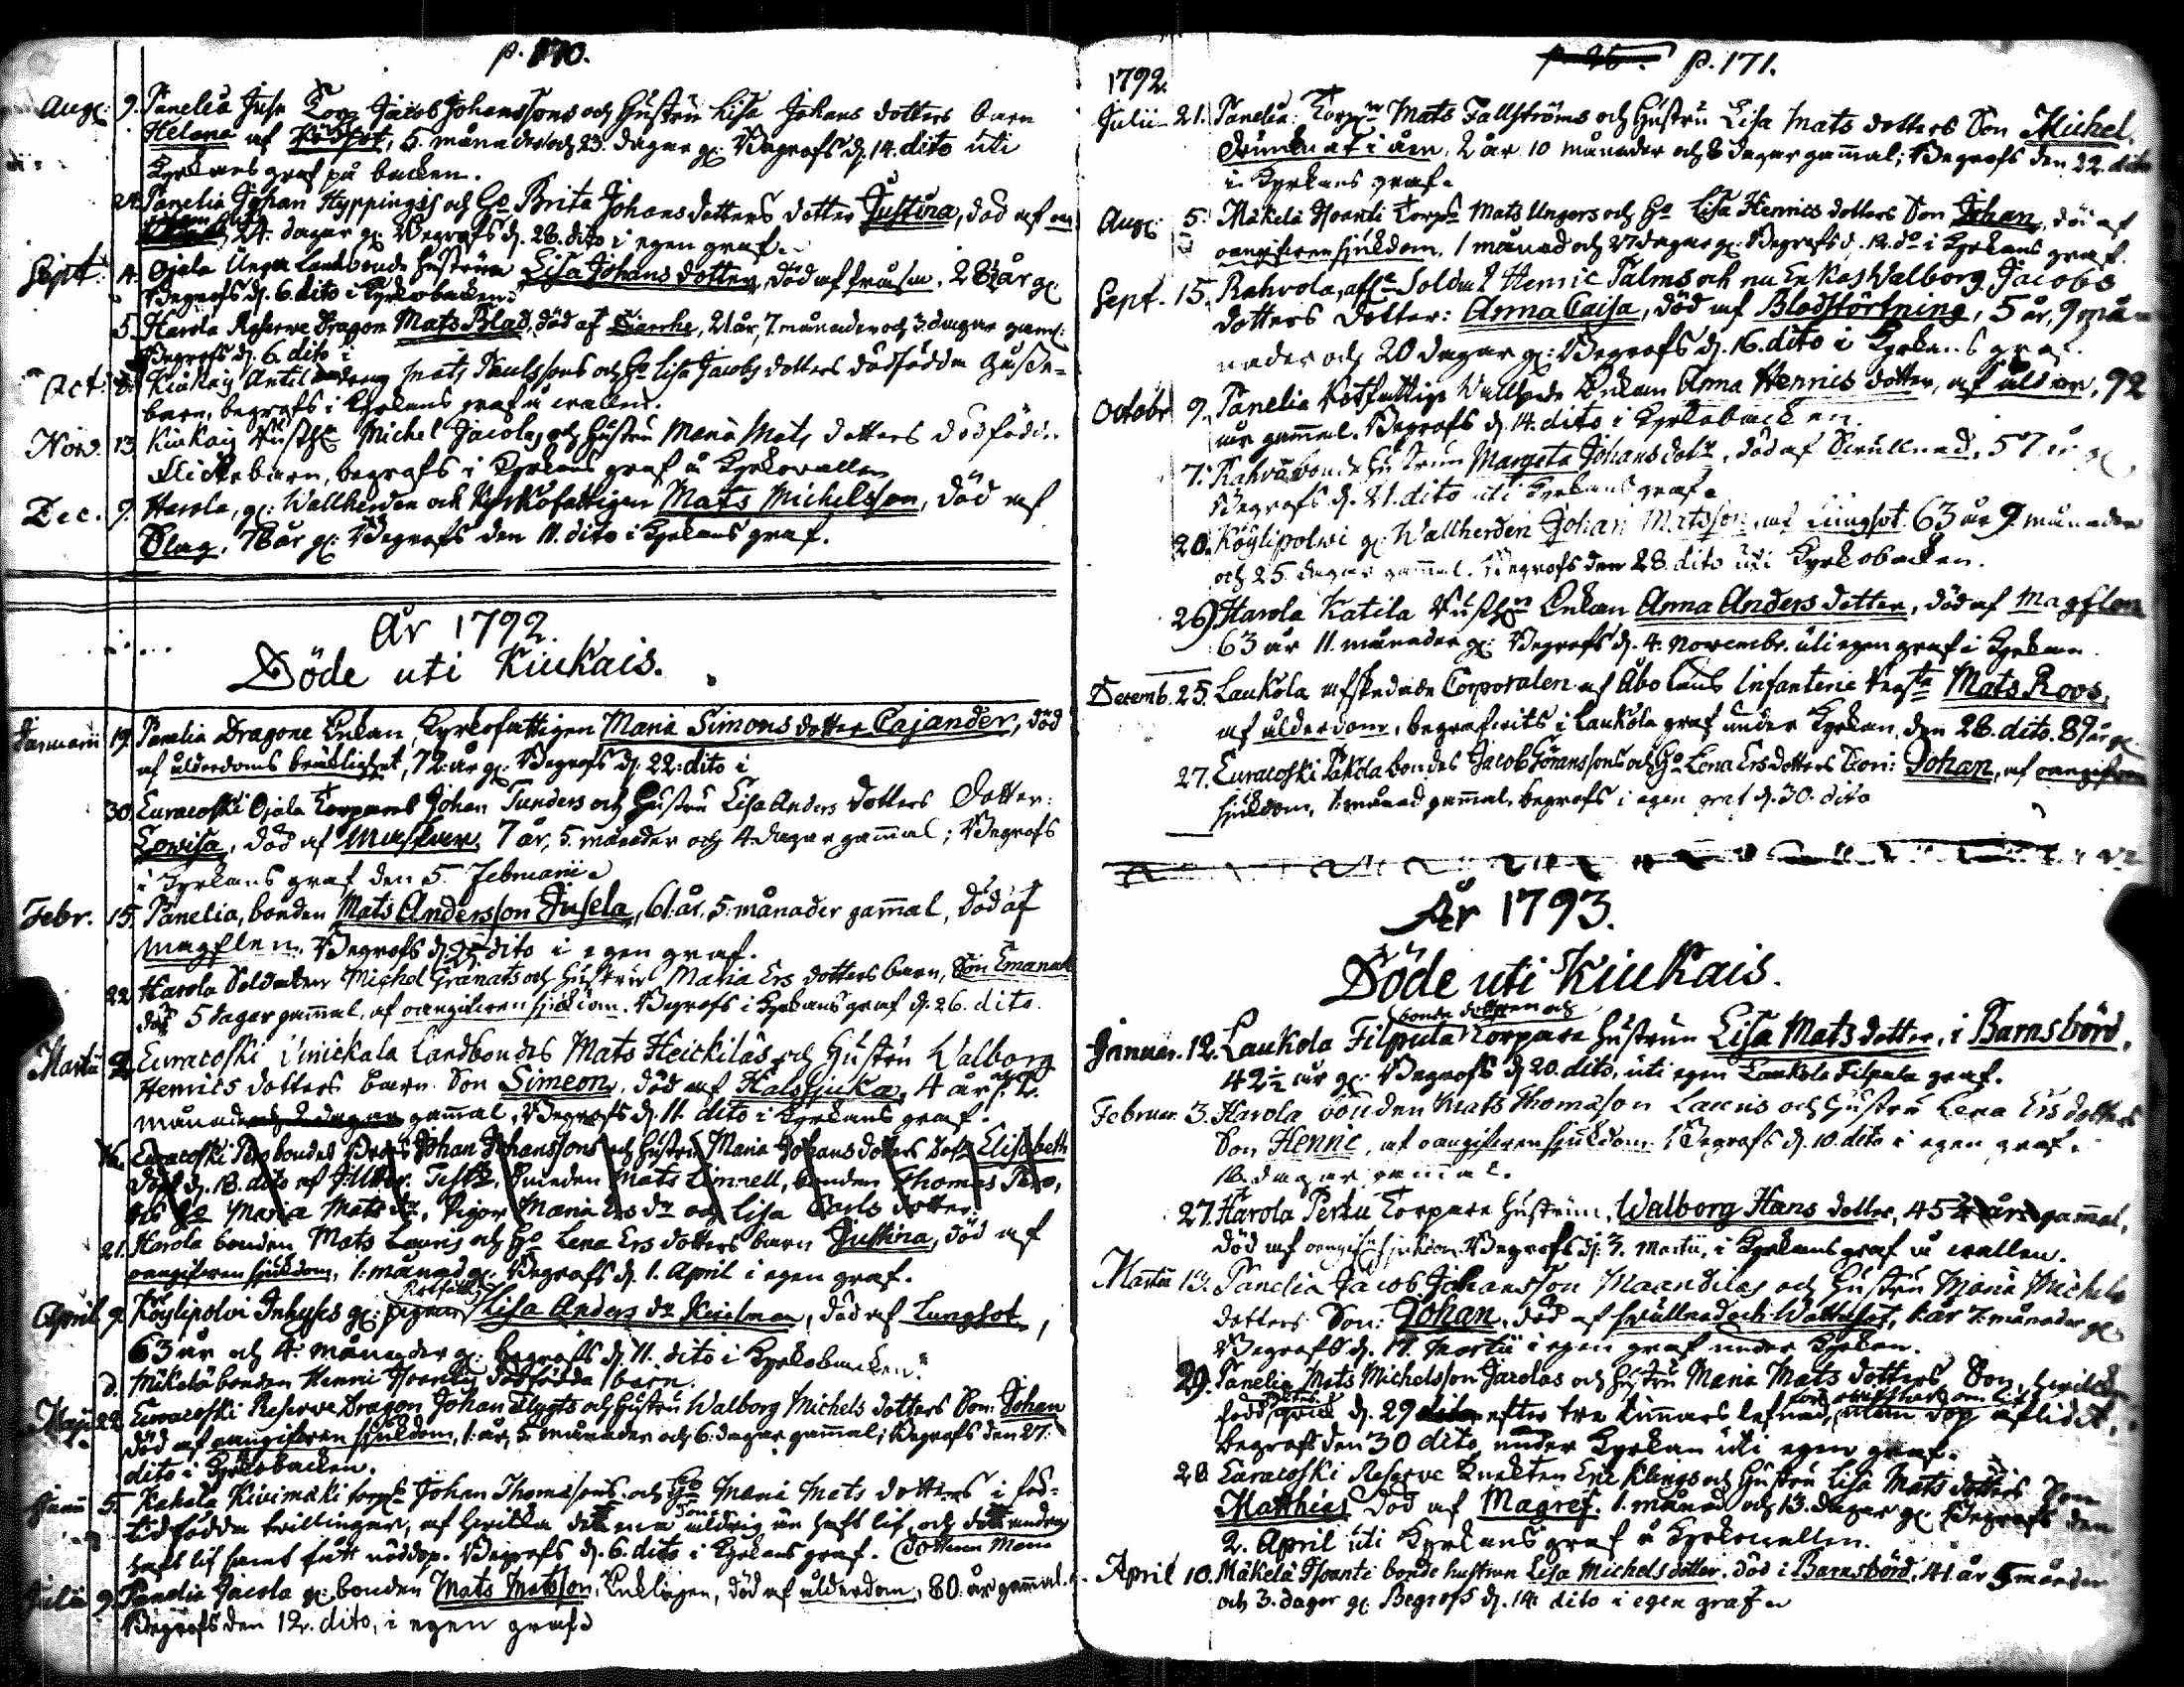 p. 170.
Aug: 9. Panelia Jusu Torp: Jacob Johanssons och Hustru Lisa Johans dotters barn
Helena af 5. månader och 23. dagar gl: Begrofs d. 14. dito uti
Kyrkans graf på backen.
24. Panelia Johan Hyppingis och Ho Brita Johans dotters dotter Justina, död af
24. dagar gl: Begrofs d. 28. dito i egen graf.
Sept: 4. Ojala Unga Landbonde hustrun Lisa Johans dotter, död af 28½ år gl
Begrofs d. 6. dito i Kyrkobacken
5. Harola Reserve Dragon Mats Blad, död af 21 år, 7. månader och 3. dagar gaml:
Begrofs d. 6. dito i
Oct. 8. Kiukais Antila dreng Mats Paulssons och Ho Lisa Jacobs dotters dödfödda gosse-
barn, begrofs i Kyrkans graf å wallen.
Nov. 13 Kiukais Michel Jacola, och Hustru Maria Mats dotters dödfödde
Flickebarn, begrofs i Kyrkans graf å Kyrkowallen
Dec. 9. Harola, gl: Wallherden och Kyrkofattigen Mats Michelsson, död af
Slag. 78 år gl: Begrofs den 11. dito i Kyrkans graf.
År 1792.
Döde uti Kiukais.
Januarii 19. Panelia Dragone Enkan, Kyrkofattigen Maria Simons dotter Cajander, död
af ålderdoms bräklighet, 72. år gl: Begrofs d. 22. dito i
30. Euracoski Ojala Torparens Johan Tunders och Hustru Lisa Anders dotters dotter:
Lowisa, död af 7 år, 5. månader och 4 dagar gammal; Begrofs
i Kyrkans graf den 5. Februarii
Febr. 15. Panelia, bonden Mats Andersson Jusela, 61. år. 5. månader gammal, död af
magplen. Begrofs d. 25 dito i egen graf.
22 Harola Soldaten Michel Granats och Hustrus Maria Ers dotters barn, Son Emanuel
död 5 dagar gammal, af oangifwen sjukdom. Begrofs i Kyrkans graf d. 26. dito.
Martii 2. Euracoski Landbondes Mats Heickiläs och Hustru Walborg
Henrics dotters barn. Son Simeon, död af Halssjuka, 4 år
månad och dagar gammal, Begrofs d. 11. dito i Kyrkans graf.
Euracoski bondes Johan Johanssons och Hustru Maria Johans dotters dotr Elisabeth
döpt d. 18. dito af Testes, Mats Linnell, bonden Thomas
Ho Maria Mats dr, Pigor Maria Ers dr och Lisa Carls dotter.
21. Harola bonden Mats Lauris och Ho Lena Ers dotters barn Justina, död af
oangifwen sjukdom, 1. månad gl: Begrofs d. 1. April i egen graf.
April 9. Köylipolvi Inhyses gl: pigan Lisa Anders dr död af Lungsot,
63 år och 4. månader gl: begrofs d. 11. dito i Kyrkobacken.
d. Mäkelä bonden Henric dödfödda barn.
Maji 22. Euracoski Reserve Dragon Johan Flygts och Hustru Walborg Michels dotters Son: Johan
död af oangifwen sjukdom, 1. år, 5. månader och 6. dagar gammal; Begrofs den 27.
dito i Kyrkobacken.
Junii 5. Kakala Kivimäki torprs Johan Thomasons och Ho Maria Mats dotters i fod-
tid födda trillingar, af hvilka det ena aldrig än haft lif, och det andra
haft lif samt fått nöddop. Begrofs d. 6. dito i Kyrkans graf. dottren Maria
Julii 9. Panelia Jacola gl: bonden Mats Matsson, Enklingen, död af ålderdom, 80. år gammal.
Begrofs den 12. dito, i egen graf
p. 171.
1792.
Julii 21. Panelia: Torprn Mats Fallströms och Hustru Lisa Mats dotters Son Michel,
Drunknat i åen, 2 år 10 månader och 8 dagar gammal; Begrofs den 22. dito
i Kyrkans graf.
Aug: 5. Mäkelä Isoanti Torprs Mats Ungers och Ho Lisa Henrics dotters Son Johan, död af
oangifwen sjukdom, 1 månad och 27 dagar gl: Begrofs d. 12. do i Kyrkans graf.
Sept. 15. Rahvola, afl: Soldat Henric Palms och nu Enkas Walborg Jacobs
dotters dotter: Anna Caisa, död af Blodstörtning, 5 år, 9 må-
nader och 20 dagar gl: Begrofs d. 16. dito i Kyrkans graf.
Octobr 9. Panelia Rotfattige Wallhede Enkan Anna Henrics dotter, af ålder, 92
år gammal. Begrofs d. 14. dito i Kyrkobacken.
7. Rahvå bonde Hustrun Margeta Johans dotr, död af Swullnad, 57 år gl
Begrofs d. 21. dito uti Kyrkans graf.
20. Köylipolvi gl: Wallherden Johan Matsson, af Lungsot 63 år 9. månader
och 25. dagar gammal. Begrofs den 28. dito uti Kyrkobacken.
29 Harola Katila Enkan Anna Anders dotter, död af Magplen
63 år 11. månader gl: Begrofs d. 4. Novembr. uti egen graf i Kyrkan.
Decemb. 25. Laukola afskedade Corporalen af Åbo Läns Infanterie Mats Roos,
af ålderdom, begrafwits i Laukola graf under Kyrkan, den 28. dito. 89 år gl
27. Euracoski Päkola bondes Jacob Göranssons och Ho Lena Ersdotters Son: Johan, af oangifwen
sjukdom, 1. månad gammal, begrofs i egen graf d. 30. dito
År 1793.
Döde uti Kiukais.
bonde dottren och
Januar. 12. Laukola Filpula Torpare Hustrun Lisa Mats dotter, i Barnsbörd,
42½ år gl: Begrofs d 20. dito, uti egen Laukola Filpula graf.
Februar. 3. Harola bonden Mats Thomasson Lauris och Hustru Lena Ers dotters
Son Henric, af oangifwen sjukdom. Begrofs d. 10. dito i egen graf.
16. dagar gammal.
27. Harola Perku Torpare Hustrun, Walborg Hans dotter, 45 år gammal,
död af oangifn sjukdom. Begrofs d. 3. Martii, i Kyrkans graf å wallen.
Martii 13. Panelia Jacob Johansson Maandilas och Hustru Maria Michels
dotters Son: Johan, död af swullnad och Wattusot, 1. år 7. månader gl
Begrofs d. 17. Martii i egen graf under Kyrkan.
29. Panelia Mats Michelsson Jacolas och Hustru Maria Mats dotters Son, hwilken
född d. 29 dito efter tre timmars lefnad, utan dop aflidit,
begrofs den 30 dito under Kyrkan uti egen graf.
28 Euracoski Reserve Knekten Eric Klings och Hustru Lisa Mats dotters Son
Matthias, död af Magref. 1. månad och 13. dagar gl. Begrofs den
2. April uti Kyrkans graf å Kyrkowallen.
April 10. Mäkelä Isoanti bonde hustrun Lisa Michels dotter, död i Barnsbörd, 41. år 5 månader
och 3. dagar gl. Begrofs d. 14. dito i egen graf